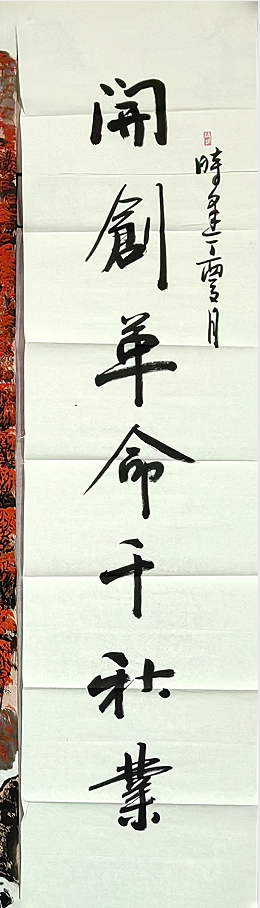 時逢丁酉夏月
開創革命千秋業